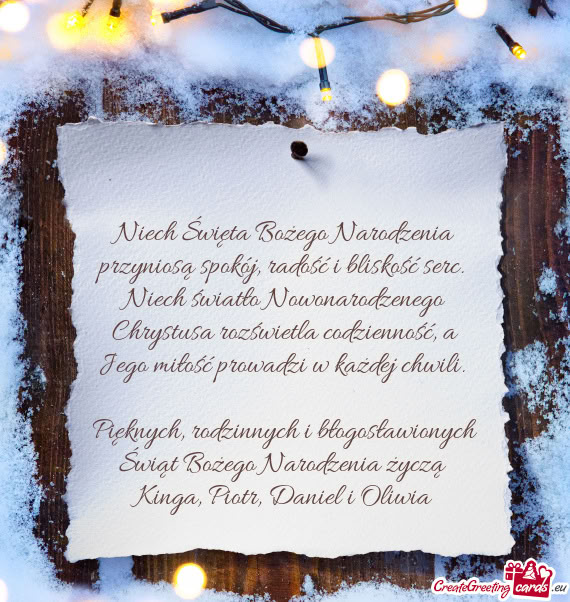 Niech Święta Bożego Narodzenia
przyniosą spokój, radość i bliskość serc.
Niech światło Nowonarodzonego
Chrystusa rozświetla codzienność, a
Jego miłość prowadzi w każdej chwili.
Pięknych, rodzinnych i błogosławionych
Świąt Bożego Narodzenia życzą
Kinga, Piotr, Daniel i Oliwia
CreateGreeting cards .eu